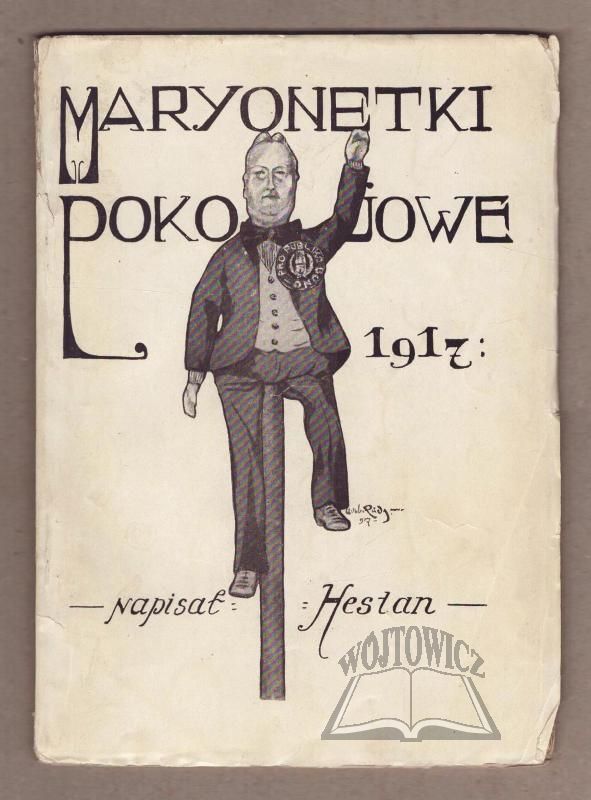 MARYONETKI
POKOJOWE
PRO PUBLIKO BONO
1917:
— Napisał: :Hesłan —
WÓJTOWICZ